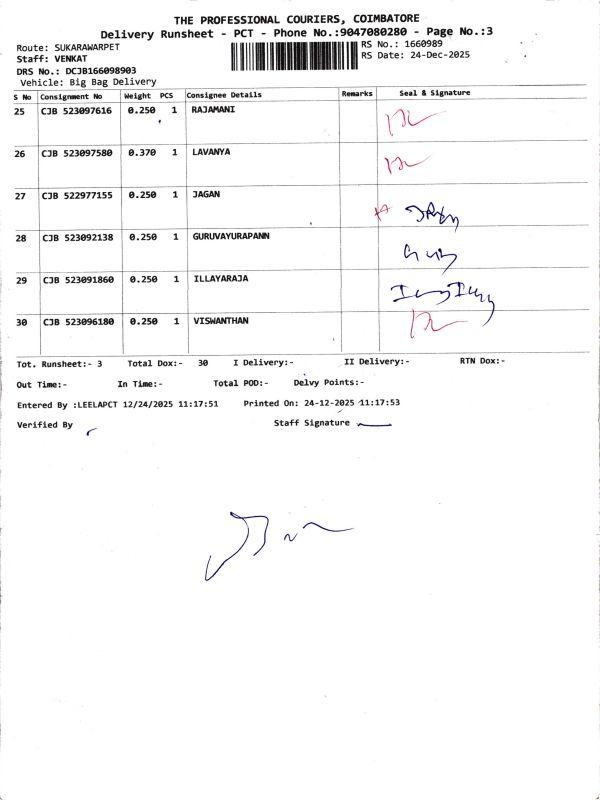 THE PROFESSIONAL COURIERS, COIMBATORE
Delivery Runsheet - PCT - Phone No.:9047080280 - Page No.:3
Route: SUKARAWARPET
RS No.: 1660989
Staff: VENKAT
RS Date: 24-Dec-2025
DRS No.: DCJB166098903
Vehicle: Big Bag Delivery
S No Consignment No Weight PCS Consignee Details Remarks Seal & Signature
25 CJB 523097616 0.250 1 RAJAMANI
26 CJB 523097580 0.370 1 LAVANYA
27 CJB 522977155 0.250 1 JAGAN
28 CJB 523092138 0.250 1 GURUVAYURAPANN
29 CJB 523091860 0.250 1 ILLAYARAJA
30 CJB 523096180 0.250 1 VISWANTHAN
Tot. Runsheet:- 3 Total Dox:- 30 I Delivery:- II Delivery:- RTN Dox:-
Out Time:- In Time:- Total POD:- Delvy Points:-
Entered By :LEELAPCT 12/24/2025 11:17:51 Printed On: 24-12-2025 11:17:53
Verified By Staff Signature